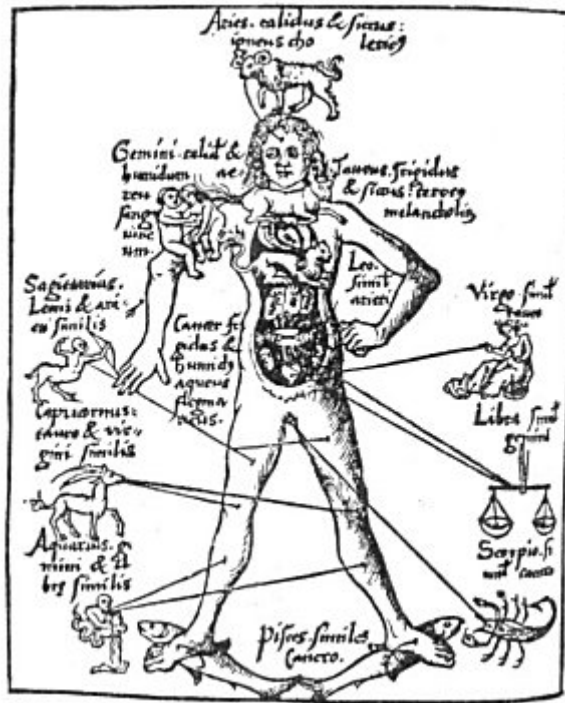 Aries. calidus & siccus:
igneus cho lericꝰ
Gemini. calid &
humidum ae-
reu
sang
uine
um.
Taurus. frigidus
& siccus: terreꝰ
melancholicꝰ
Leo.
simil
arieti
Sagittarius.
Leoni & ari-
eti similis
Cancer fri
gidus &
humidꝰ
aqueus
flegma
ticus.
Virgo simil
tauro
Capricornus:
tauro & vir-
gini similis
Libra simil
gemini
Aquarius. ge
mini & li
bre similis
Scorpio. si
mil cancro
Pisces. similes
Cancro.